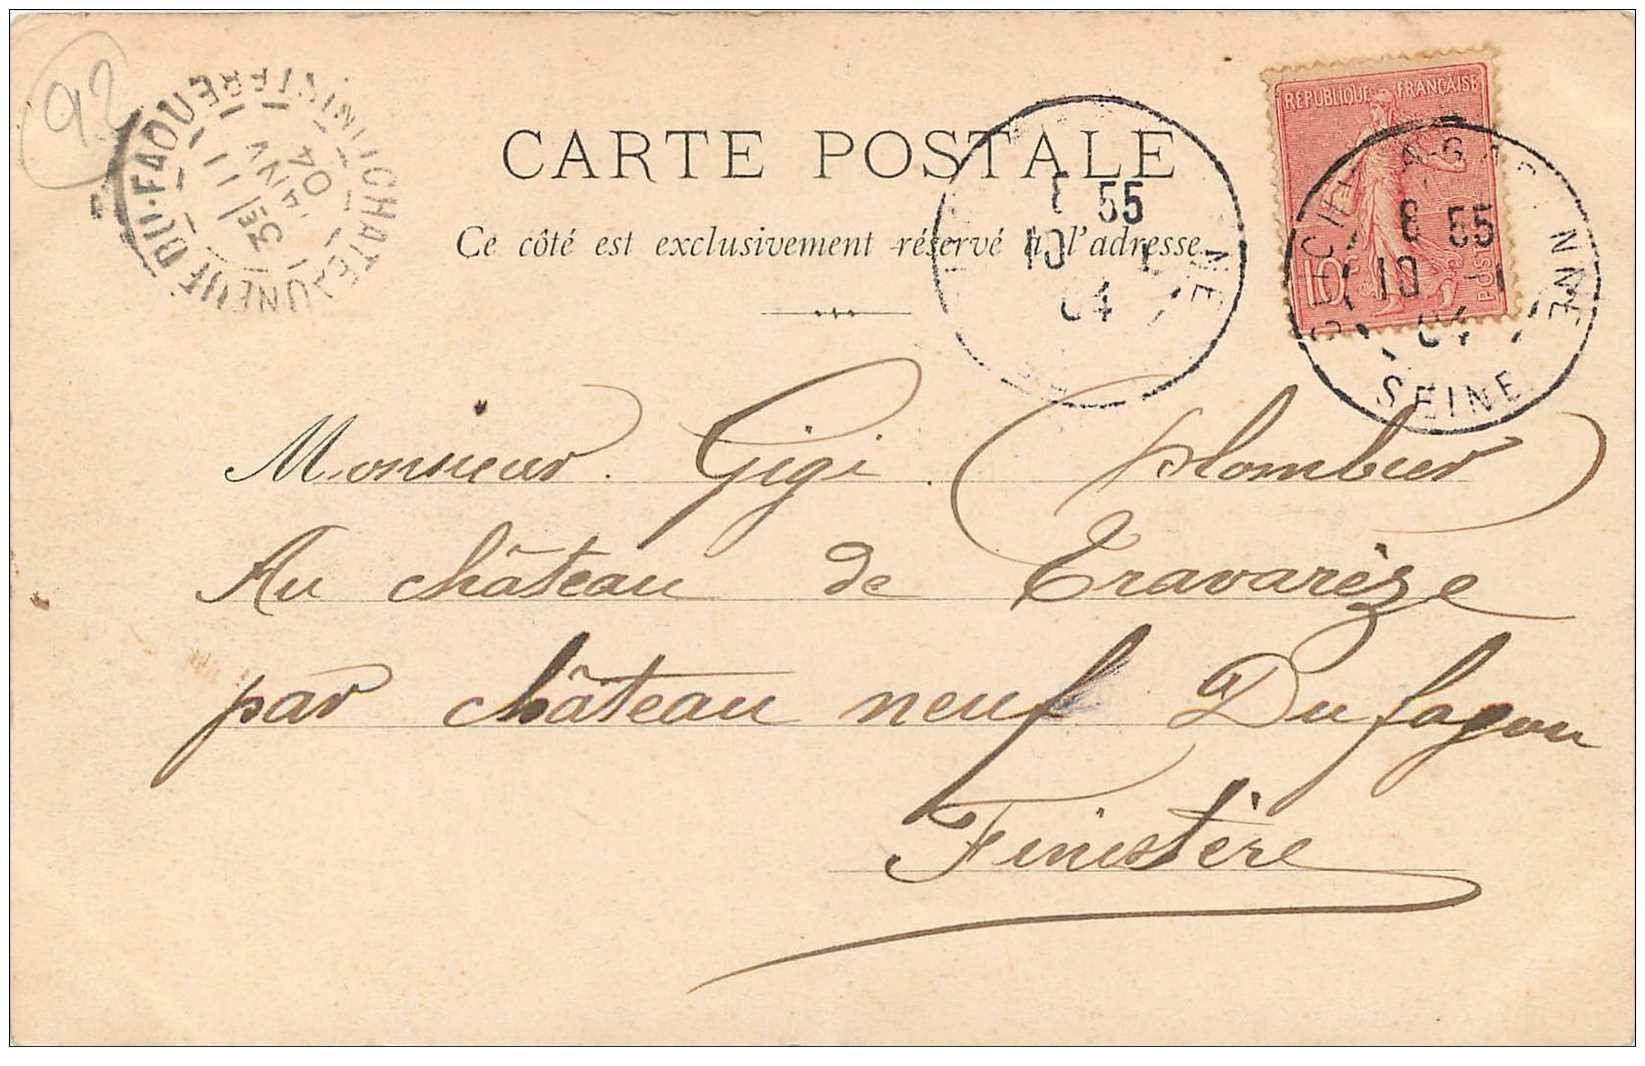 92
CHATEAUNEUF-DU-FAOU
3E / 11
11 JANV
04
CARTE POSTALE
Ce côté est exclusivement réservé à l'adresse
RÉPUBLIQUE FRANÇAISE
10
POSTES
8 55
10 1
04
NE
8 55
10 1
04
SEINE
Monsieur Gigi (plombier)
Au château de Travarèze
par château neuf Du fagou
Finistère